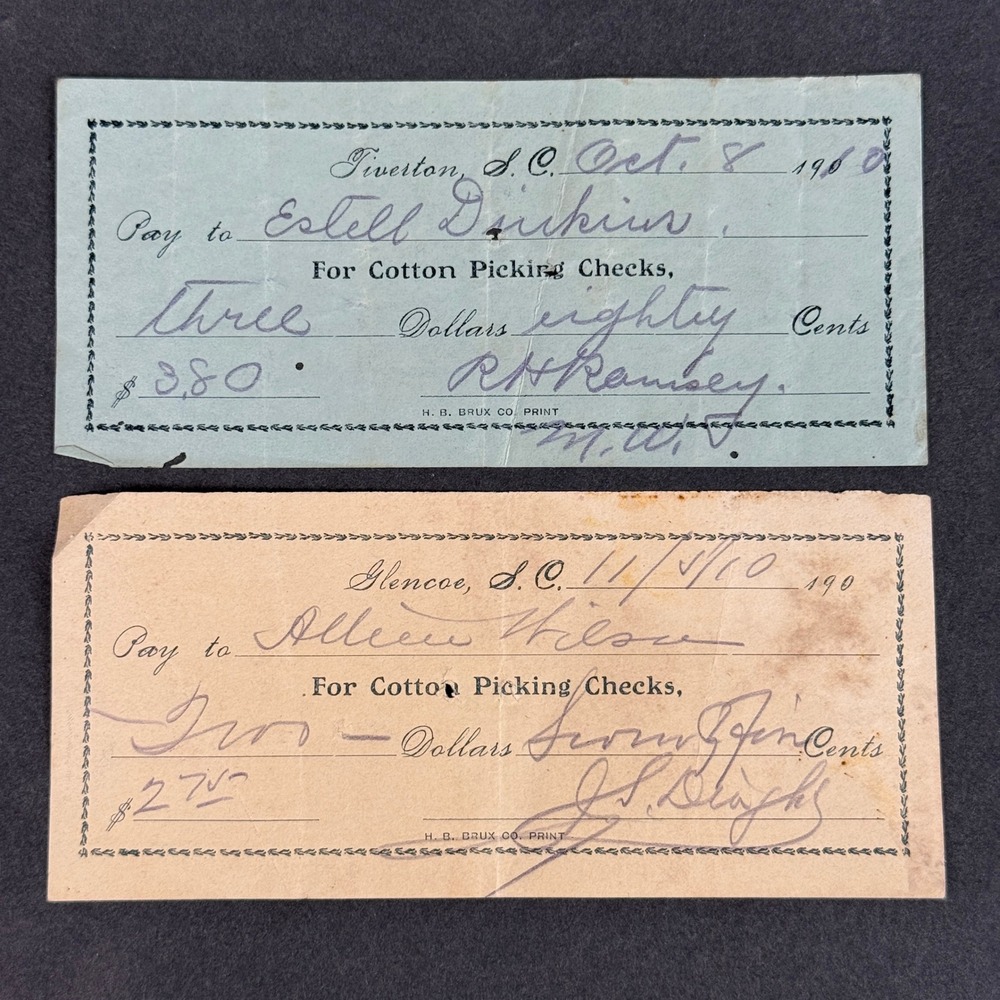 Tiverton, S. C. Oct. 8 1910
Pay to Estell Dinkins.
For Cotton Picking Checks,
three Dollars eighty Cents
$ 3.80 R H Ramsey.
H. B. BRUX CO. PRINT
M. W.
Glencoe, S. C. 11/5/10 190
Pay to Wilson
For Cotton Picking Checks,
Two — Dollars Cents
$ 2 75 J. S.
H. B. BRUX CO. PRINT